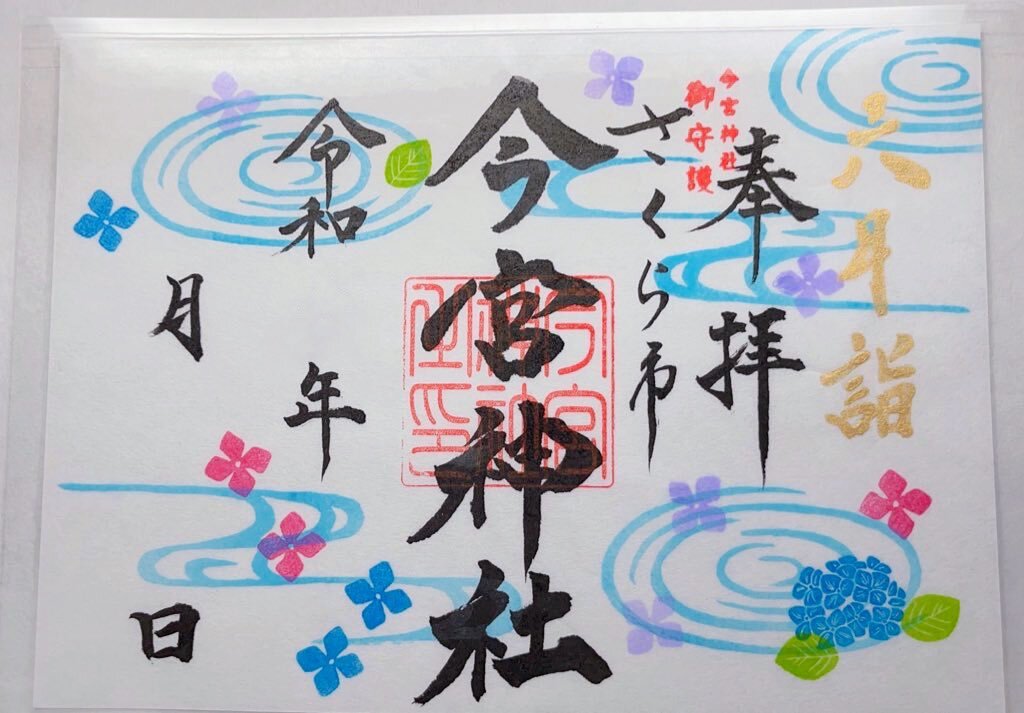 六月詣
奉拝
今宮神社
御守護
さくら市
今宮神社
今宮神社之印
令和
年
月
日